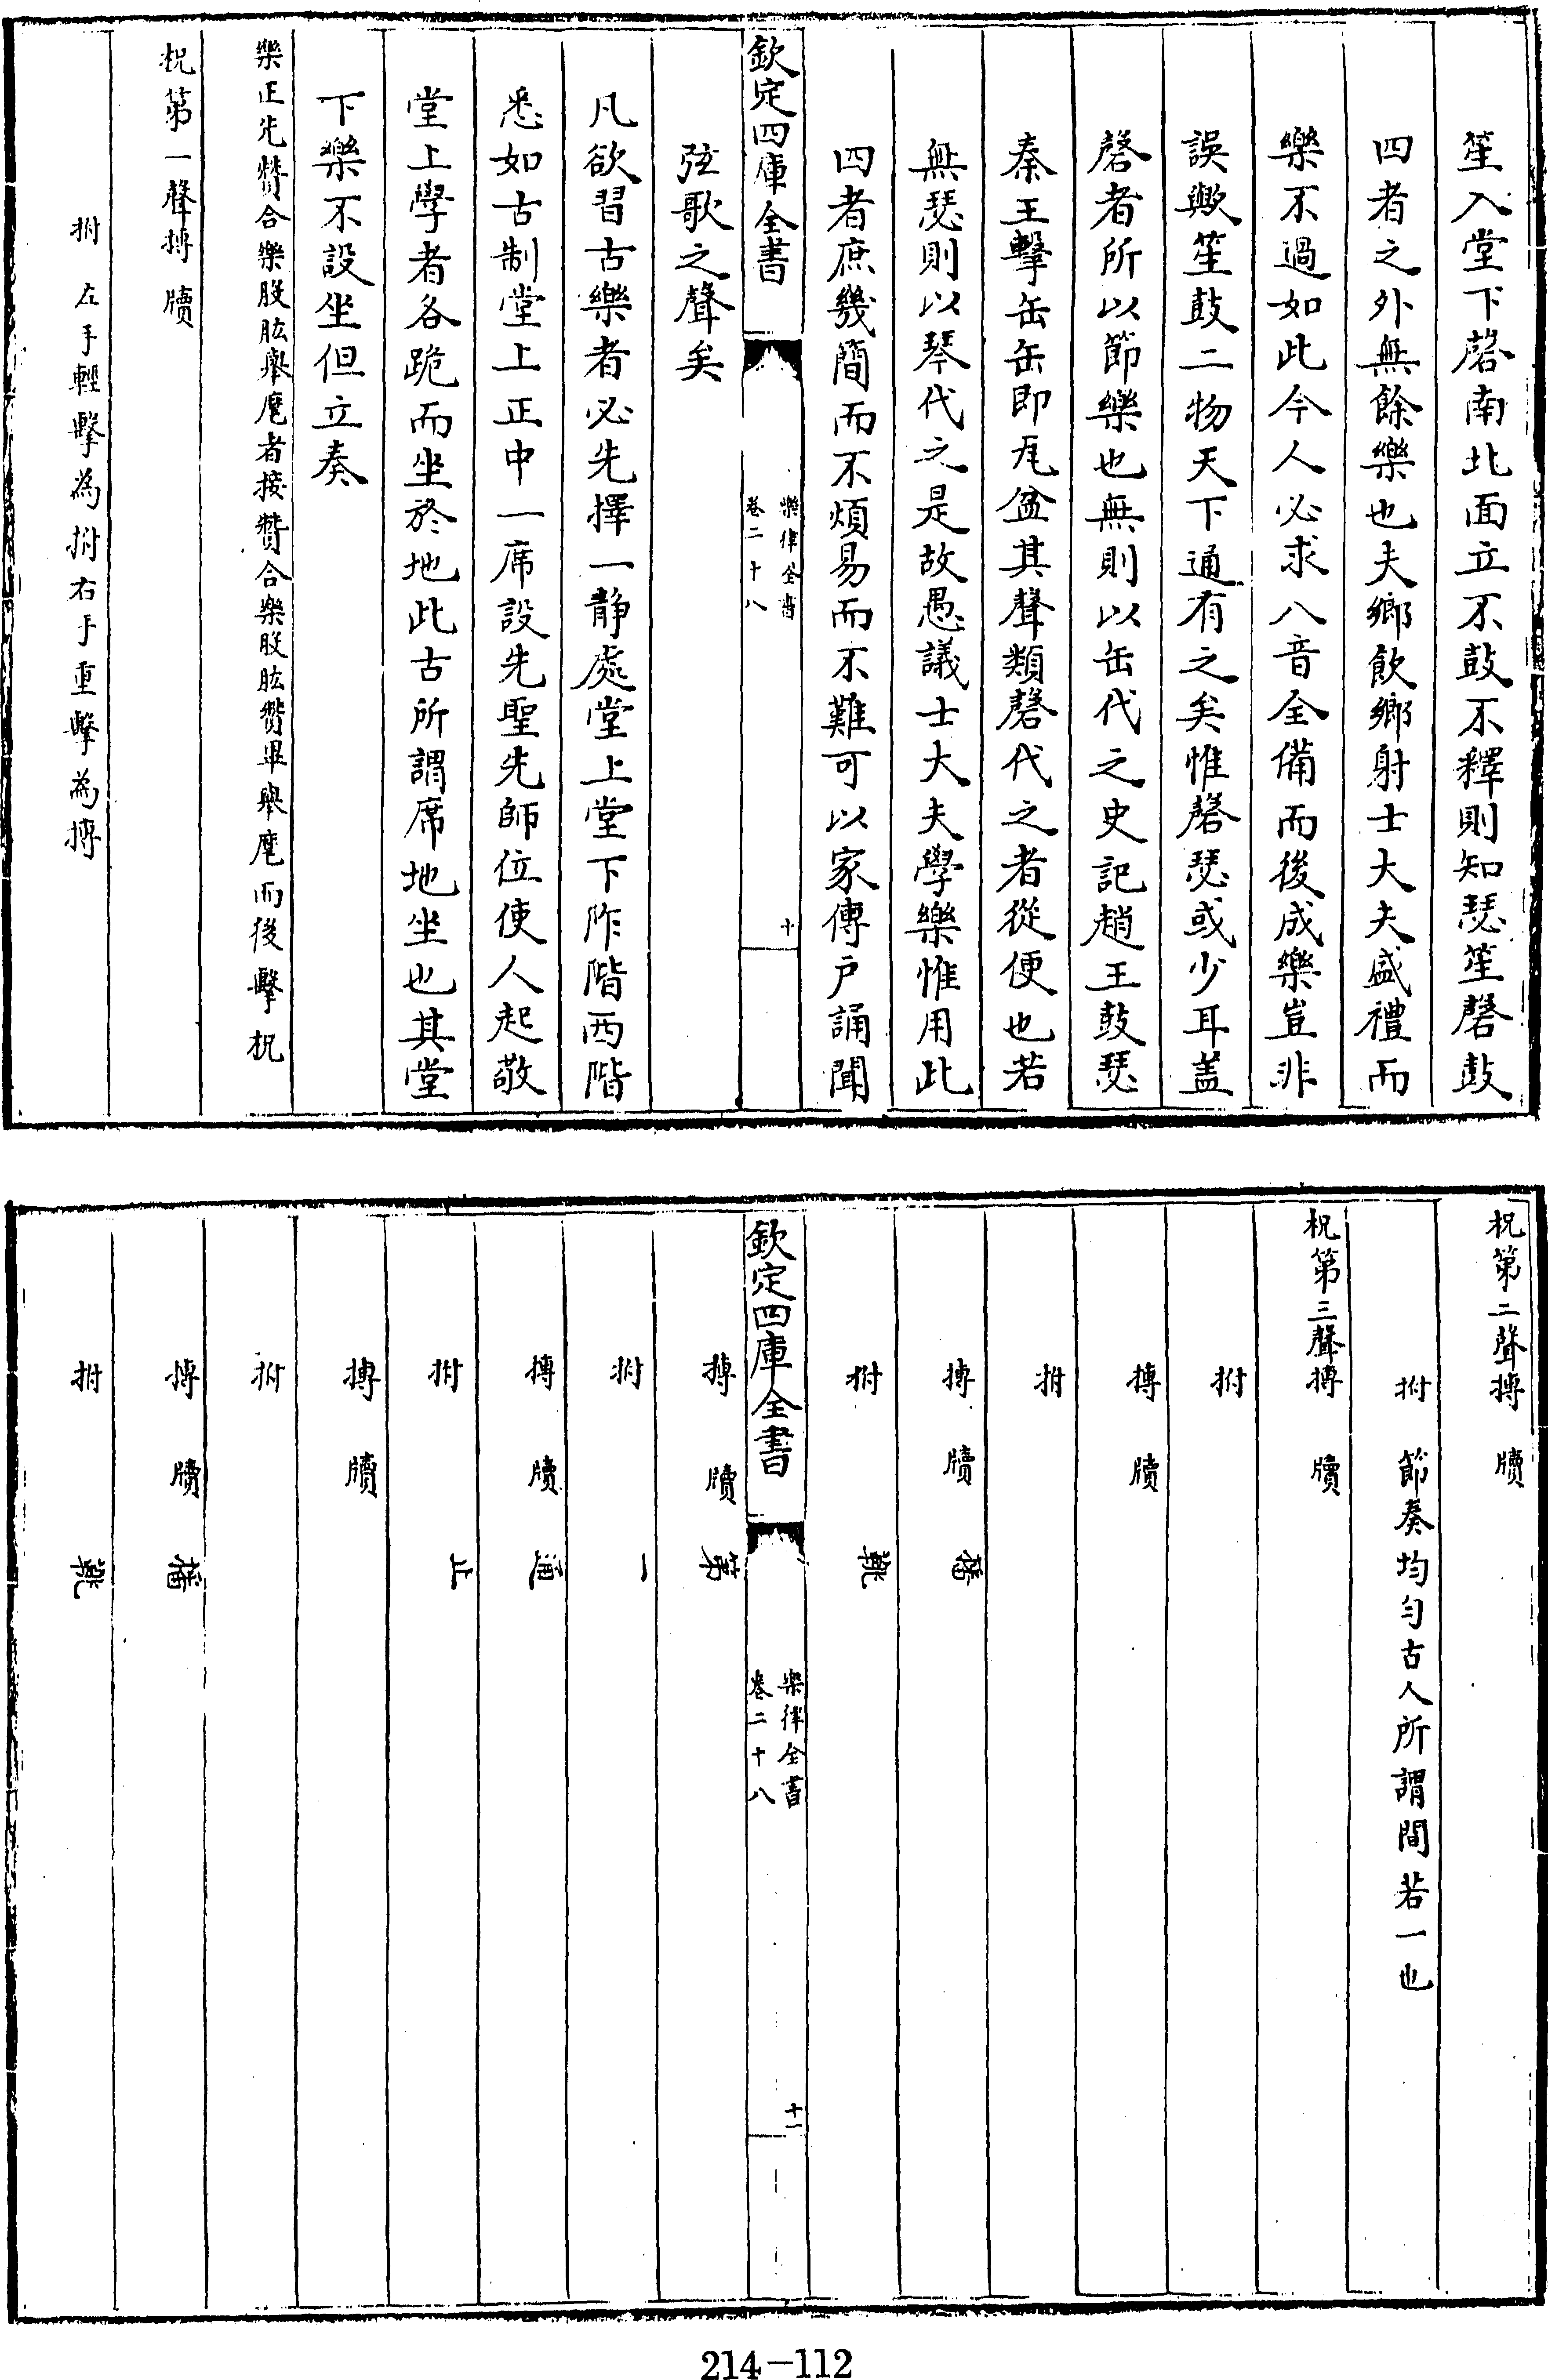 笙入堂下磬南北面立不鼓不釋則知瑟笙磬鼓
四者之外無餘樂也夫鄉飲鄉射士大夫盛禮而
樂不過如此今人必求八音全備而後成樂豈非
誤歟笙鼓二物天下通有之矣惟磬瑟或少耳盖
磬者所以節樂也無則以缶代之史記趙王鼓瑟
秦王擊缶缶即瓦盆其聲類磬代之者從便也若
無瑟則以琴代之是故愚議士大夫學樂惟用此
四者庶幾簡而不煩易而不難可以家傳戶誦聞
欽定四庫全書
樂律全書
卷二十八
十
弦歌之聲矣
凡欲習古樂者必先擇一静處堂上堂下阼階西階
悉如古制堂上正中一席設先聖先師位使人起敬
堂上學者各跪而坐於地此古所謂席地坐也其堂
下樂不設坐但立奏
樂正先贊合樂股肱舉麾者接贊合樂股肱贊畢舉麾而後擊柷
柷第一聲搏 牘
拊 左手輕擊為拊右手重擊為搏
柷第二聲搏 牘
拊 節奏均勻古人所謂間若一也
柷第三聲搏 牘
拊
搏 牘
拊
搏 牘 播
拊 鞉
欽定四庫全書
樂律全書
卷二十八
十一
搏 牘 第
拊 一
搏 牘 通
拊 止
搏 牘
拊
搏 牘 播
拊 鞉
214-112